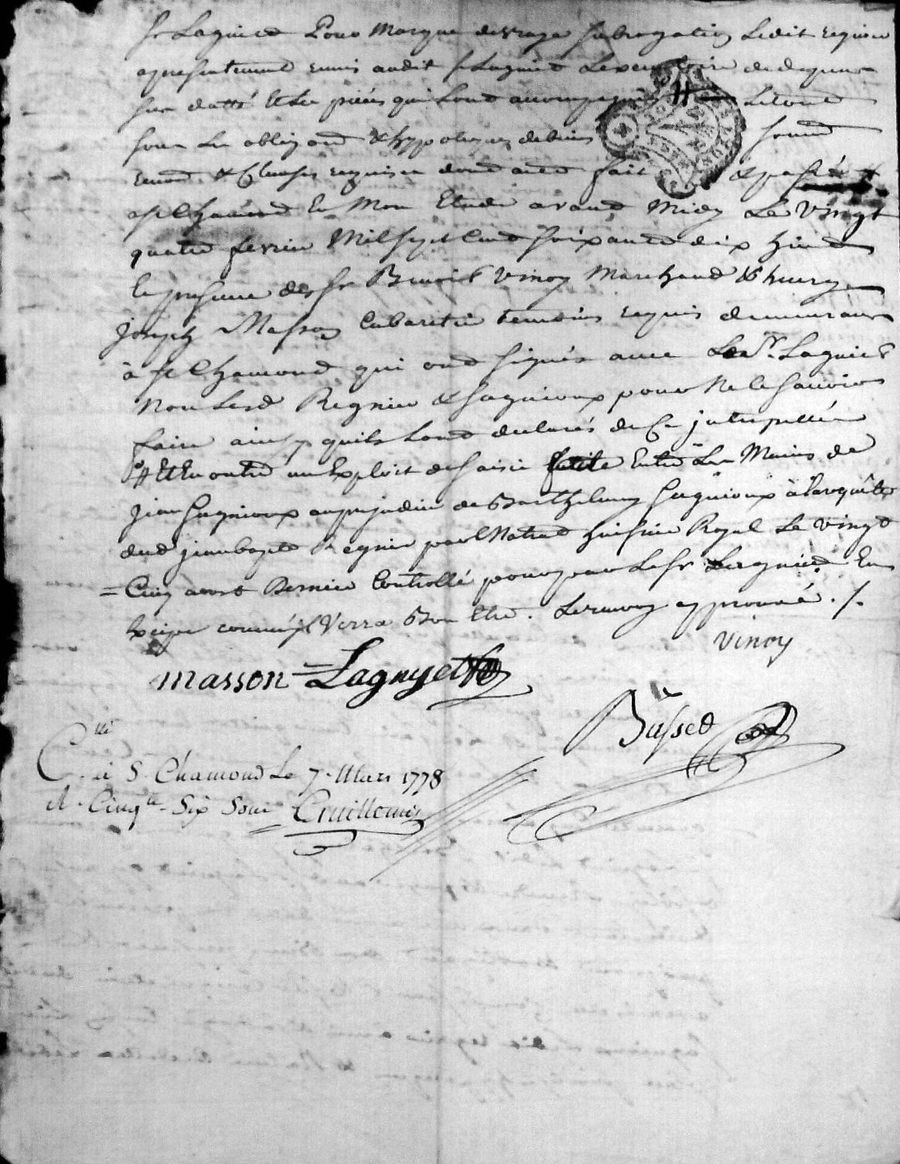 Sr Lagniet Pour Marque de vraye subrogation Ledit regnier
a presentement remis audit Sr Lagniet Lexpedition
sus datté Et les pieces qui Lont accompagné
sous les obligaõns & hypoteques de biens
renonõns & Clauses requises dont acte fait & passé
a St Chamond En Mon Etude avant Midy Le Vingt
quatre fevrier Mil sept Cent soixante dix huit
En presence des Sr Benoit Vinoy Marchand &
Joseph Masson Cabaretier temoins requis demeurant
à St Chamond qui ont signés avec Le Sr Lagniet
Non Lesd Regnier & Gagnioux pour Ne le savoir
faire ainsy quils Lont declarés de Ce interpellés
# Et En outre un Exploit de saisie faitte Entre Les Mains de
Jean Gagnioux au prejudice de Barthelemy Gagnioux à la requête
dud jean bapte Regnier par huissier Royal Le vingt
= Cinq aoust Dernier Controllé pour par Le Sr Lagniet En
Exciper comme il Verra Bon Etre. Le renvoy approuvé ./.
Vinoy
Masson = Lagnyet
Basset
Cllé à St Chamond Le 7. Mars 1778
R. Cinqte Six Sous Guillemin